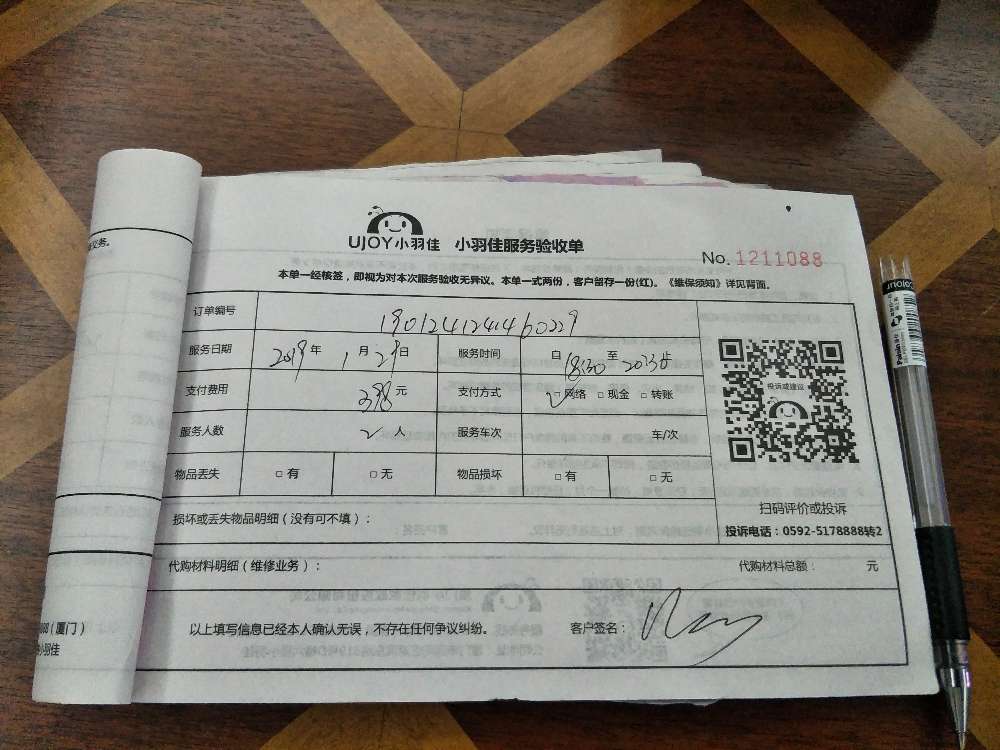 UJOY小羽佳 小羽佳服务验收单
No. 1211088
本单一经核签，即视为对本次服务验收无异议。本单一式两份，客户留存一份(红)。《维保须知》详见背面。
订单编号 1901241241460229
服务日期 2019年 1月29日 服务时间 自18:30 至
支付费用 398元 支付方式 □网络 □现金 □转账
服务人数 2人 服务车次 车/次
物品丢失 □有 □无 物品损坏 □有 □无
投诉或建议
扫码评价或投诉
投诉电话：0592-5178888转2
损坏或丢失物品明细（没有可不填）：
代购材料明细（维修业务）： 代购材料总额： 元
以上填写信息已经本人确认无误，不存在任何争议纠纷。 客户签名：
（厦门）
小羽佳